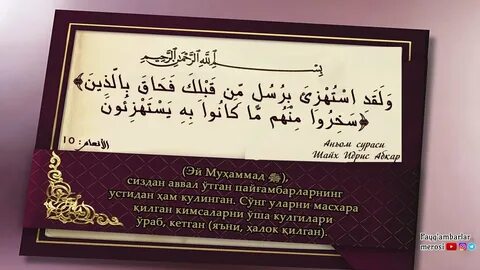 بِسْمِ اللَّهِ الرَّحْمَنِ الرَّحِيمِ
وَلَقَدِ اسْتُهْزِئَ بِرُسُلٍ مِّن قَبْلِكَ فَحَاقَ بِالَّذِينَ﴾
﴿سَخِرُوا مِنْهُم مَّا كَانُوا بِهِ يَسْتَهْزِئُونَ
الأنعام: ١٠
Анъом сураси
Шайх Идрис Абкар
(Эй Муҳаммад ﷺ),
сиздан аввал ўтган пайғамбарларнинг
устидан ҳам кулинган. Сўнг уларни масхара
қилган кимсаларни ўша кулгилари
ўраб, кетган (яъни, ҳалок қилган).
Payg'ambarlar
merosi